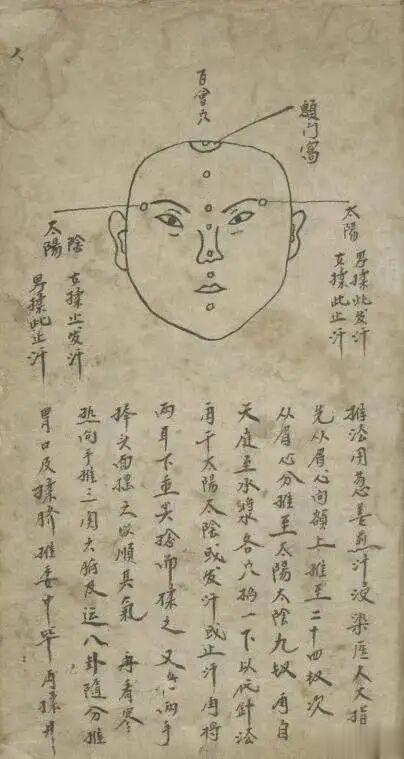 百會穴
顖門窩
太陽
男揉此发汗
女揉此止汗
太陽
陰
女揉止发汗
男揉此止汗
推法用葱姜煎汁浸染医人大指
先从眉心向額上推至二十四数次
从眉心分推至太陽太陰九数再自
天庭至承漿各穴掐一下以代針法
再于太陽太陰或发汗或止汗再将
两耳下垂尖捻而揉之 又以两手
捧头面摇之以順其氣 再看寒
热向手推三関六腑及运八卦隨分推
胃口及揉臍推委中畢再揉井